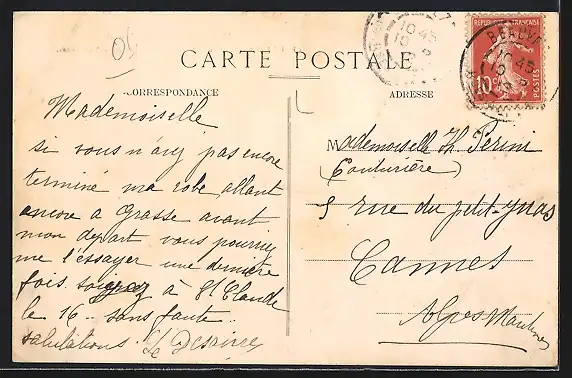 05
CARTE POSTALE
CORRESPONDANCE
ADRESSE
REPUBLIQUE FRANÇAISE
10c
POSTES
BEAUVA
10 45
10 45
Mademoiselle
si vous n'avez pas encore
terminé ma robe, allant
encore a Grasse avant
mon départ vous pourriez
me l'essayer une dernière
fois. soyez à St Claude
le 16 - sans faute.
salutations.
Mademoiselle H. Perini
(Couturière)
5 rue du petit-Juas
Cannes
Alpes Maritimes